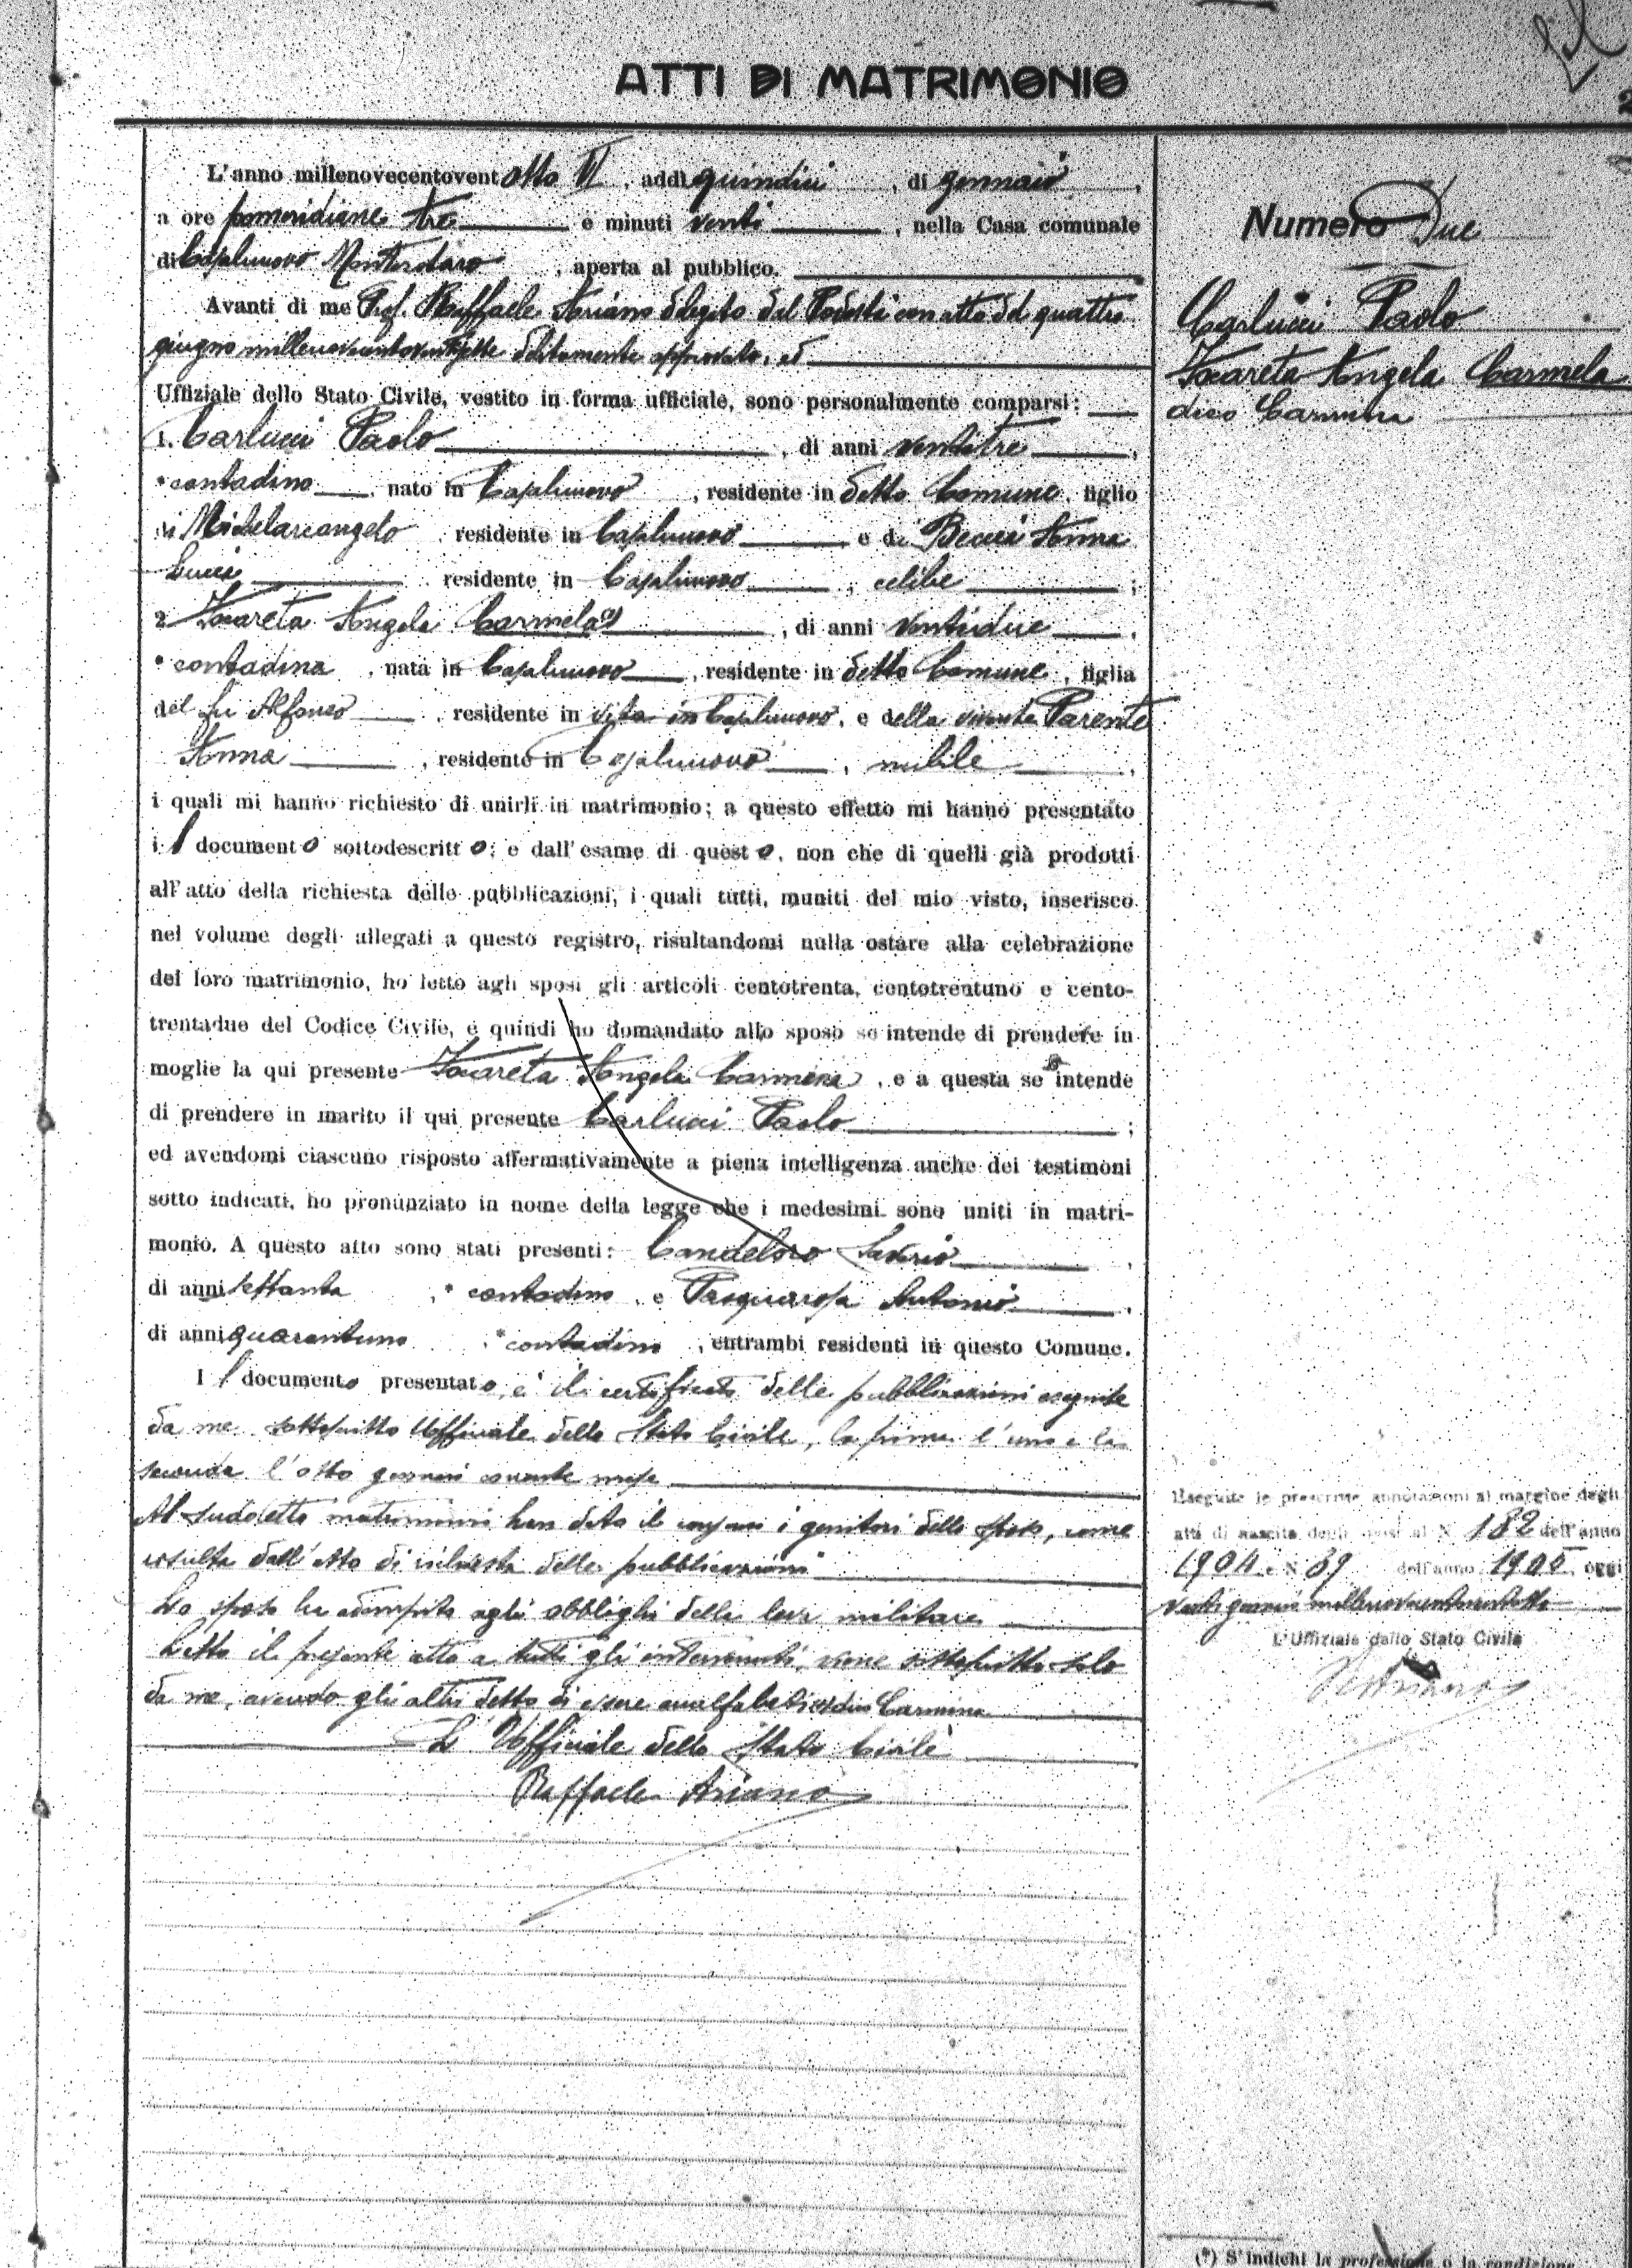 ATTI DI MATRIMONIO
L'anno millenovecentovent otto VI, addì quindici, di gennaio,
a ore pomeridiane tre e minuti venti, nella Casa comunale
di Casalnuovo Monterotaro, aperta al pubblico.
Avanti di me Prof. Raffaele Ariano delegato dal Podestà con atto del quattro
giugno millenovecentoventisette debitamente approvato, ed
Uffiziale dello Stato Civile, vestito in forma ufficiale, sono personalmente comparsi:
1. Carlucci Paolo, di anni ventitre,
* contadino, nato in Casalnuovo, residente in detto Comune, figlio
di Michelarcangelo residente in Casalnuovo e di Beccia Anna
Lucia residente in Casalnuovo, celibe;
2 Angela Carmela, di anni ventidue,
* contadina, nata in Casalnuovo, residente in detto Comune, figlia
del fu Alfonso, residente in vita in Casalnuovo, e della vivente Parente
Anna, residente in Casalnuovo, nubile,
i quali mi hanno richiesto di unirli in matrimonio; a questo effetto mi hanno presentato
il documento sottodescritto; e dall'esame di questo, non che di quelli già prodotti
all'atto della richiesta delle pubblicazioni, i quali tutti, muniti del mio visto, inserisco
nel volume degli allegati a questo registro, risultandomi nulla ostare alla celebrazione
del loro matrimonio, ho letto agli sposi gli articoli centotrenta, centotrentuno e cento-
trentadue del Codice Civile, e quindi ho domandato allo sposo se intende di prendere in
moglie la qui presente Angela Carmina, e a questa se intende
di prendere in marito il qui presente Carlucci Paolo;
ed avendomi ciascuno risposto affermativamente a piena intelligenza anche dei testimoni
sotto indicati, ho pronunziato in nome della legge che i medesimi sono uniti in matri-
monio. A questo atto sono stati presenti: Candeloro Saverio,
di anni settanta, * contadino e Pasquarosa Antonio,
di anni quarantuno, * contadino, entrambi residenti in questo Comune.
Il documento presentato, è il certificato delle pubblicazioni eseguite
da me sottoscritto Uffiziale dello Stato Civile, la prima l'uno e la
seconda l'otto gennaio corrente mese
Al sudetto matrimonio han dato il consenso i genitori dello sposo, come
risulta dall'atto di richiesta delle pubblicazioni
Lo sposo ha adempito agli obblighi della leva militare
Letto il presente atto a tutti gli intervenuti, viene sottoscritto solo
da me, avendo gli altri detto di essere analfabeti dico Carmina
L'Uffiziale dello Stato Civile
Raffaele Ariano
Numero Due
Carlucci Paolo
Angela Carmela
dico Carmina
Eseguite le prescritte annotazioni al margine degli
atti di nascita degli sposi al N. 182 dell'anno
1904 e N. 39 dell'anno 1905, oggi
venti gennaio millenovecentoventotto
L'Uffiziale dello Stato Civile
R. Ariano
(*) S'indichi la professione o la condizione.